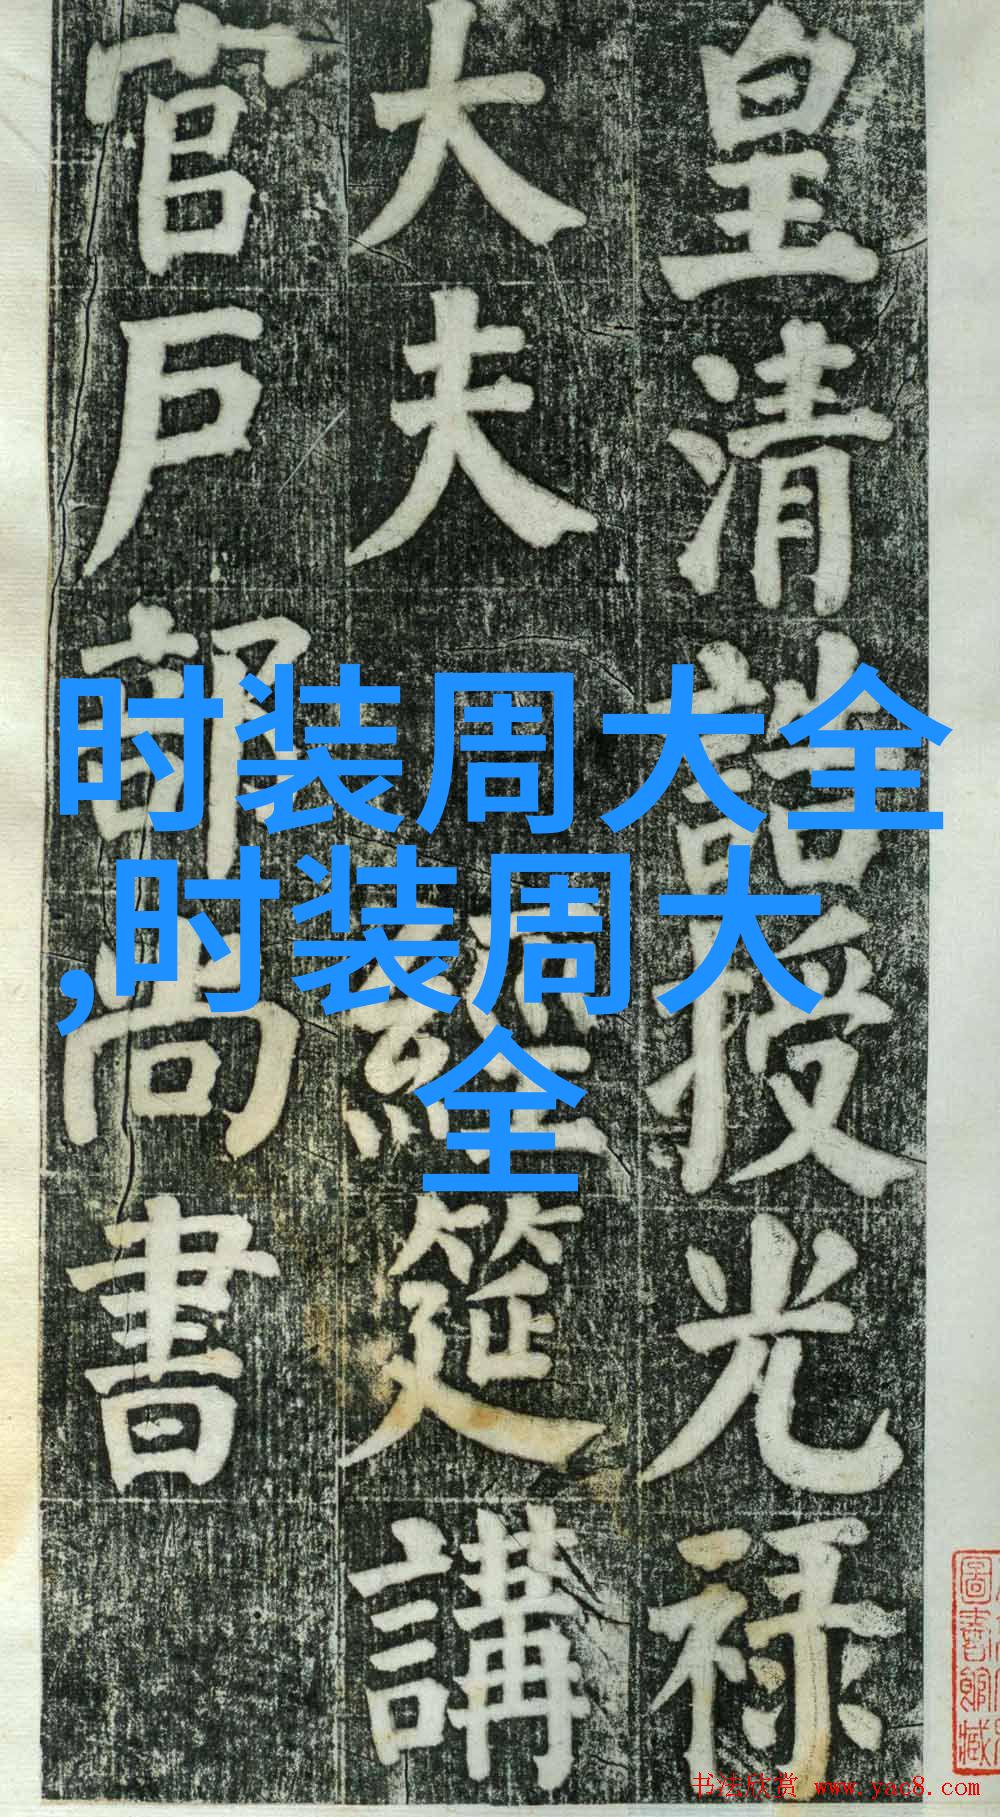 皇清誥授光禄
大夫 經筵講
官戶部尚書
时装周大全
,时装周大
全
圖書館藏
书法欣赏 www.yac8.com